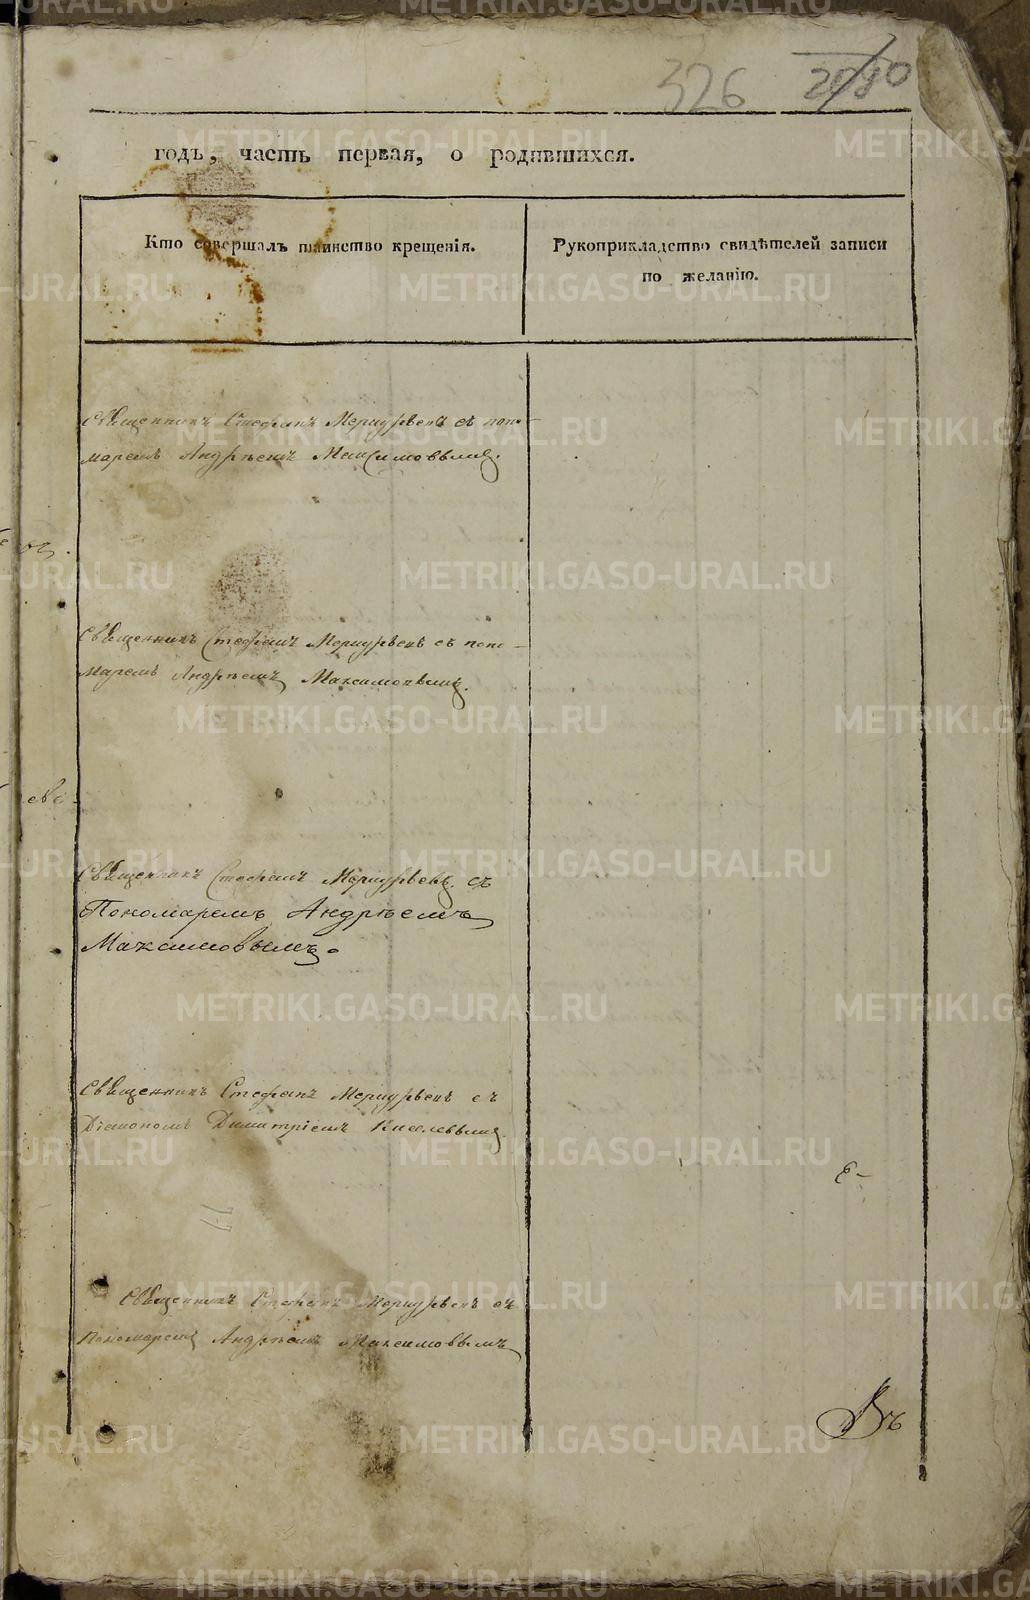 326
годъ, часть первая, о родившихся.
Кто совершалъ таинство крещенія.
Рукоприкладство свидѣтелей записи
по желанію.
Священникъ Стефанъ Меркурьевъ съ поно-
маремъ Андрѣемъ Максимовымъ.
Священникъ Стефанъ Меркурьевъ съ поно-
маремъ Андрѣемъ Максимовымъ.
Священникъ Стефанъ Меркурьевъ съ
Пономаремъ Андрѣемъ
Максимовымъ.
Священникъ Стефанъ Меркурьевъ съ
Діакономъ Димитріемъ Киселевымъ
Священникъ Стефанъ Меркурьевъ съ
Пономаремъ Андрѣемъ Максимовымъ
Въ
METRIKI.GASO-URAL.RU